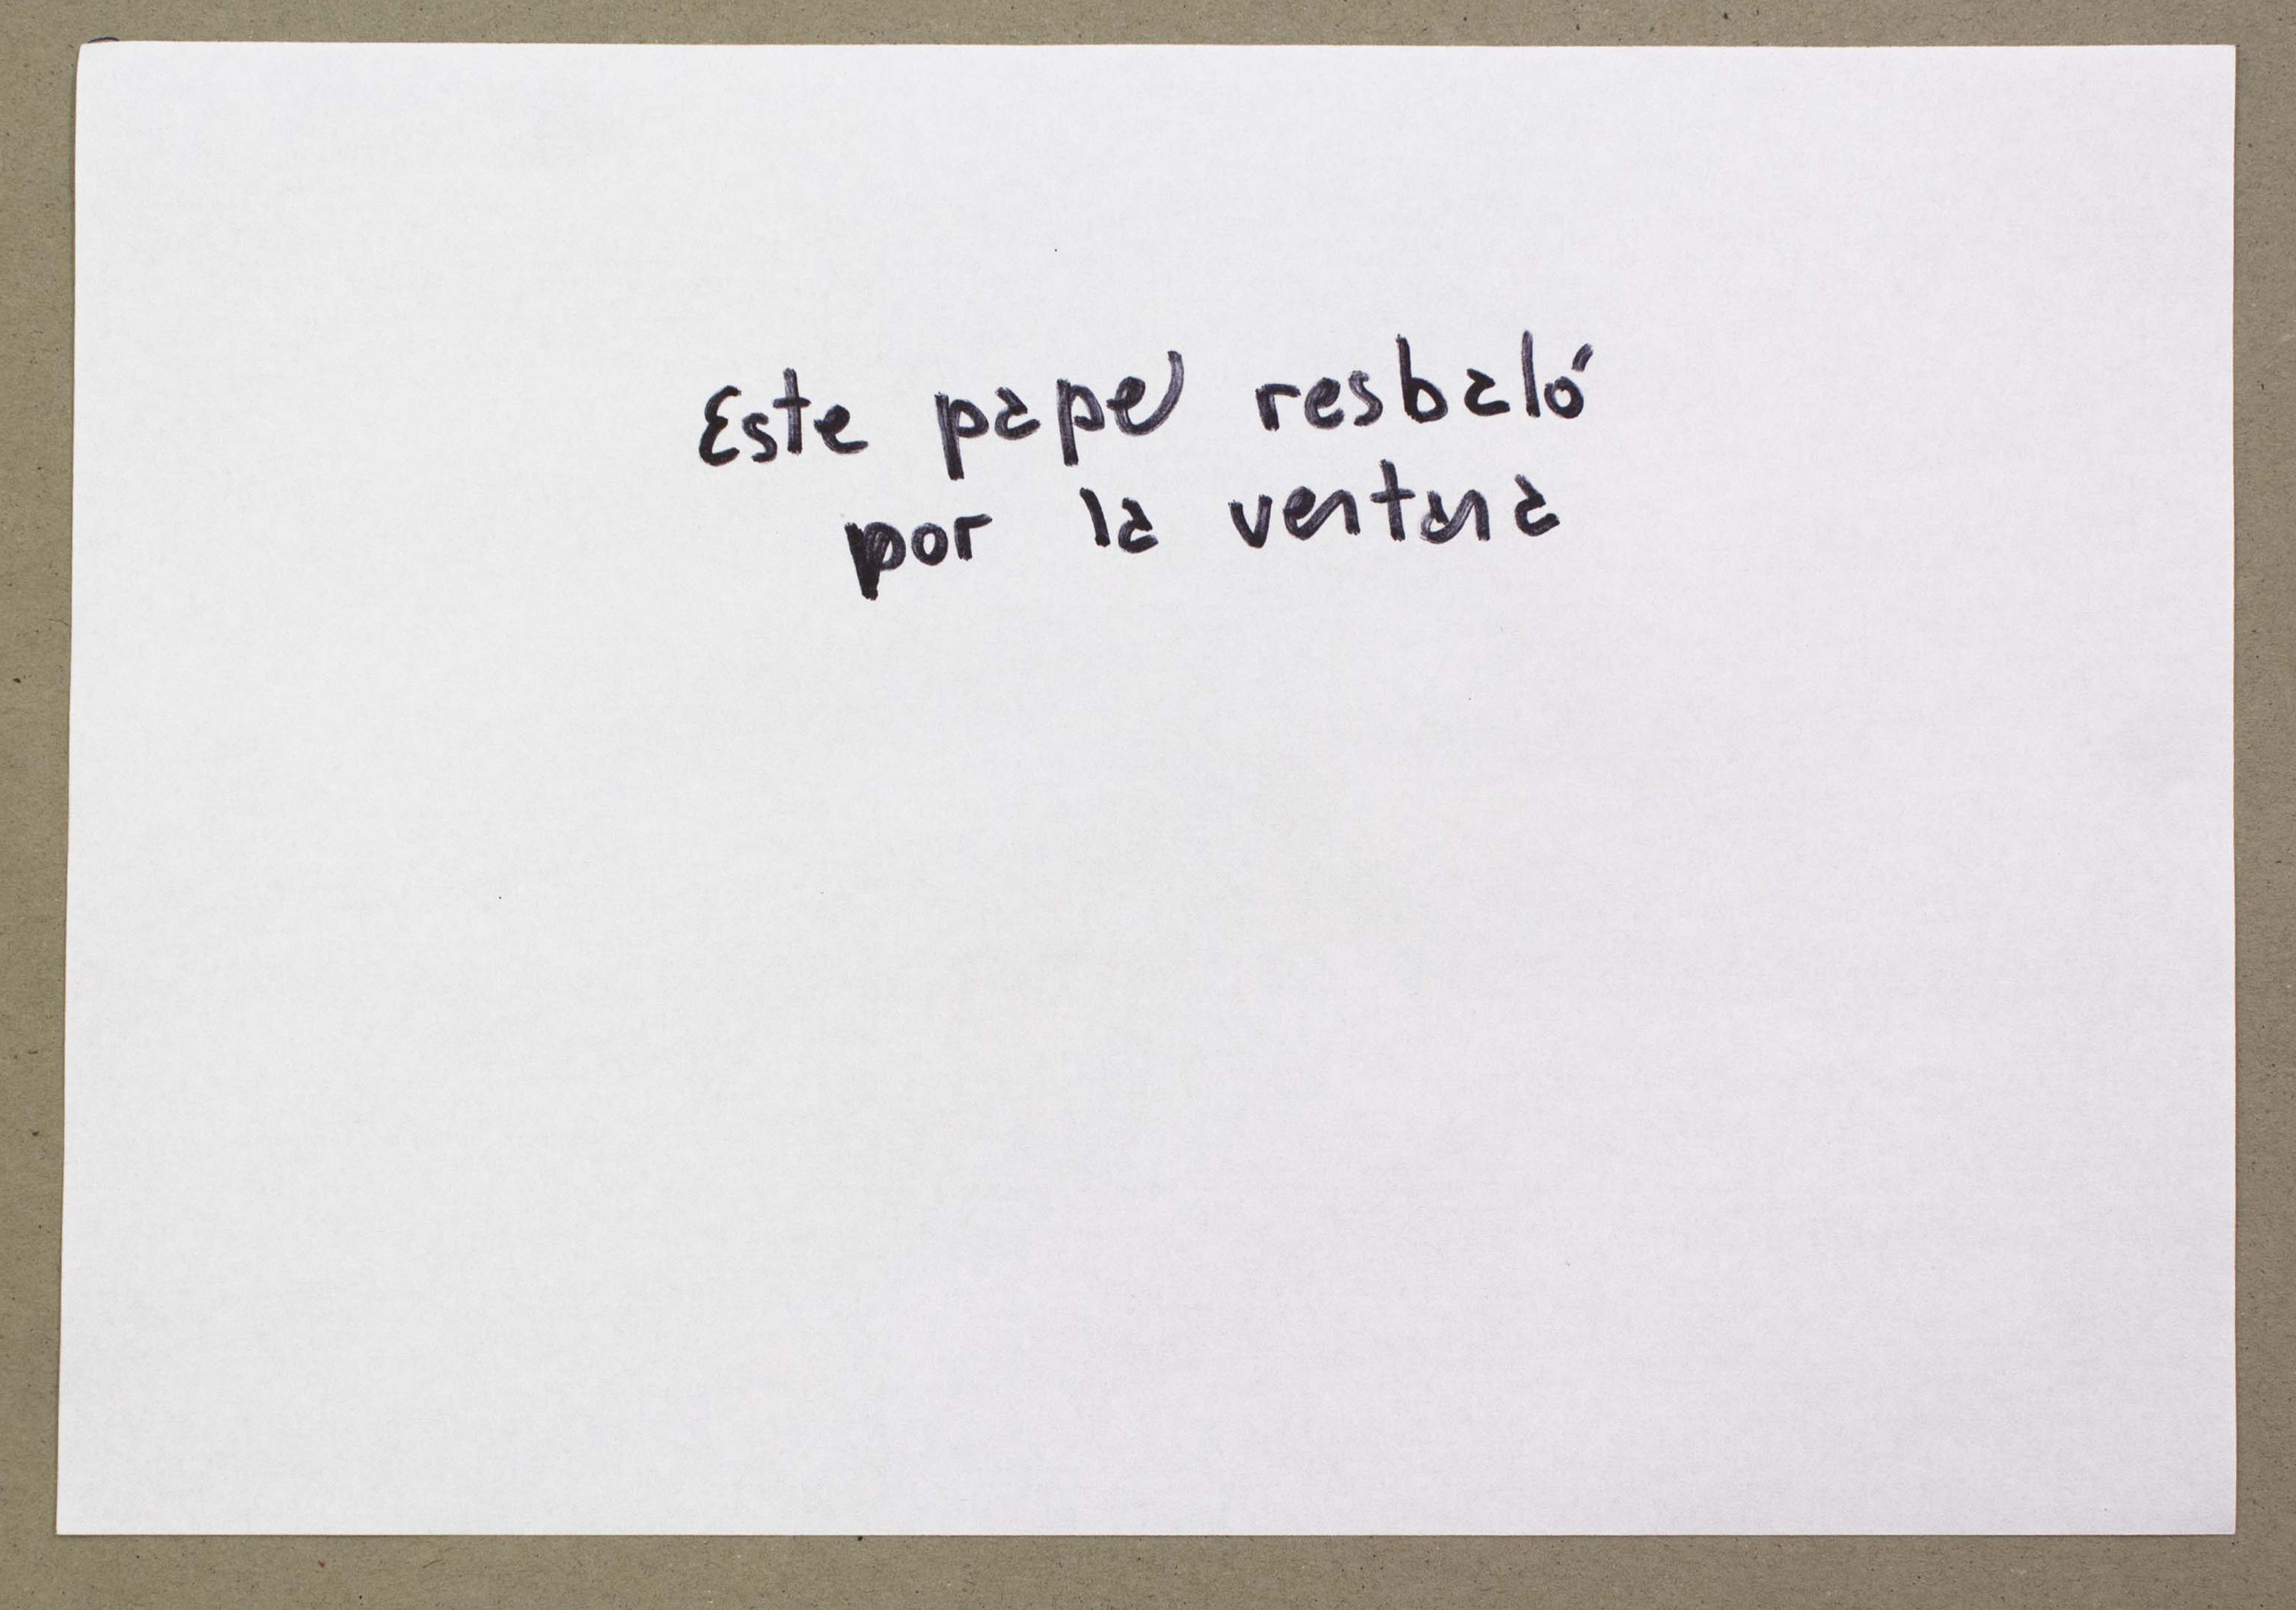 Este papel resbaló
por la ventana